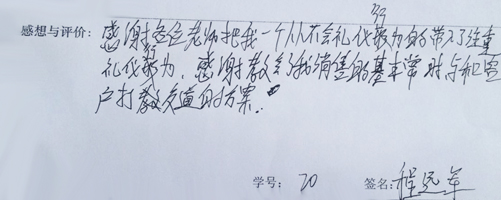 感想与评价：感谢各位老师把我一个从不会礼仪行为的带入了注重
礼仪行为，感谢教会了我销售的基本常时与和客
户打教交道的方案.
学号： 20 签名: 程远军